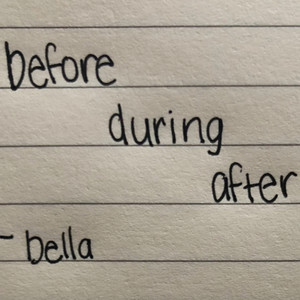 before
during
after
- bella